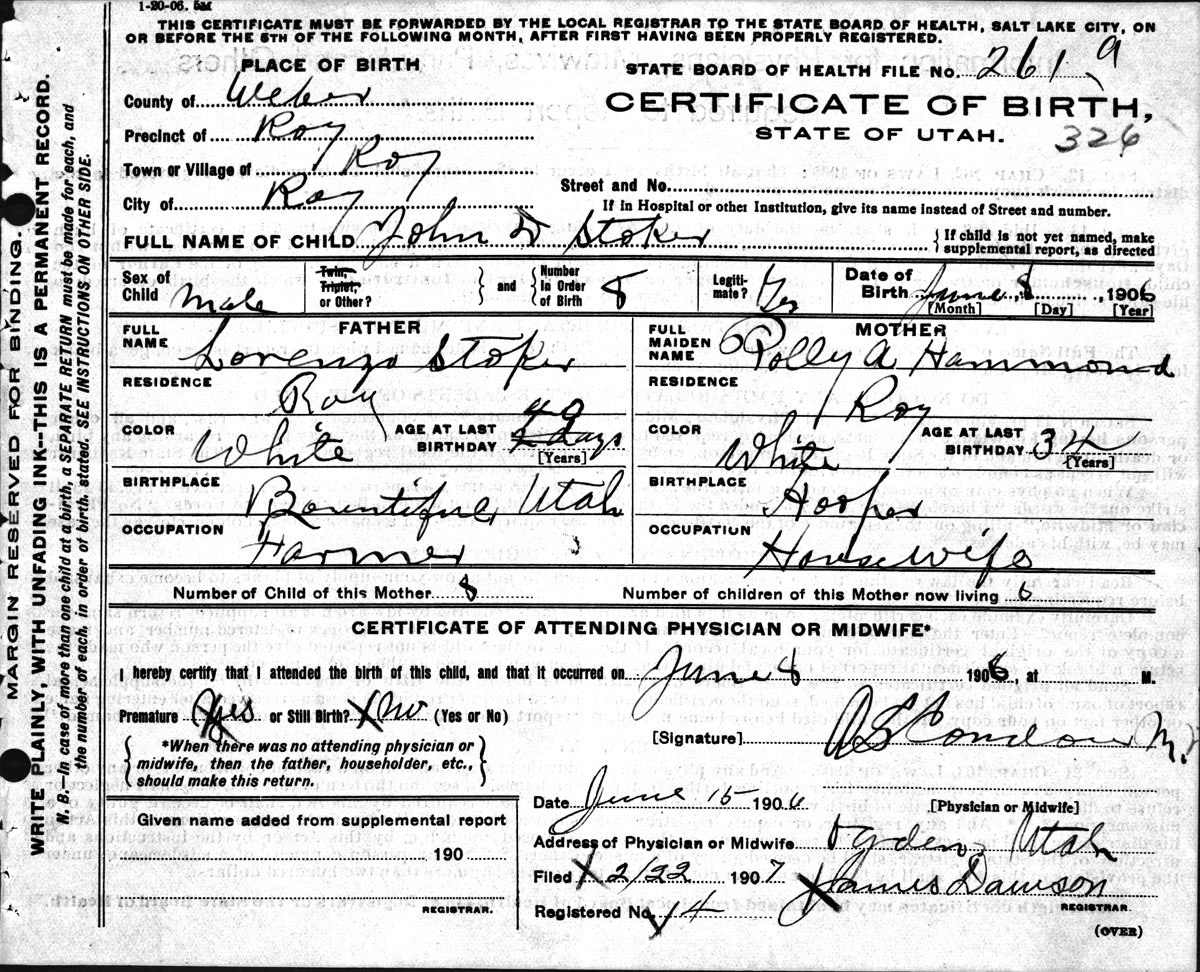 1-20-06. 5M
THIS CERTIFICATE MUST BE FORWARDED BY THE LOCAL REGISTRAR TO THE STATE BOARD OF HEALTH, SALT LAKE CITY, ON
OR BEFORE THE 5TH OF THE FOLLOWING MONTH, AFTER FIRST HAVING BEEN PROPERLY REGISTERED.
MARGIN RESERVED FOR BINDING.
WRITE PLAINLY, WITH UNFADING INK--THIS IS A PERMANENT RECORD.
N. B.--In case of more than one child at a birth, a SEPARATE RETURN must be made for each, and
the number of each, in order of birth, stated. SEE INSTRUCTIONS ON OTHER SIDE.
PLACE OF BIRTH
County of Weber
Precinct of Roy
Town or Village of Roy
City of Roy
STATE BOARD OF HEALTH FILE No. 261 9
CERTIFICATE OF BIRTH,
STATE OF UTAH. 326
Street and No.
If in Hospital or other Institution, give its name instead of Street and number.
FULL NAME OF CHILD John D Stoker { If child is not yet named, make
supplemental report, as directed
Sex of Child Male
Twin, Triplet, or Other? } and { Number in Order of Birth 8
Legitimate? Yes
Date of Birth June 8, 1906
[Month] [Day] [Year]
FATHER
FULL NAME Lorenzo Stoker
RESIDENCE Roy
COLOR White AGE AT LAST BIRTHDAY 40 days [Years]
BIRTHPLACE Bountiful, Utah
OCCUPATION Farmer
MOTHER
FULL MAIDEN NAME Polly A Hammond
RESIDENCE Roy
COLOR White AGE AT LAST BIRTHDAY [Years]
BIRTHPLACE Hooper
OCCUPATION Housewife
Number of Child of this Mother 8 Number of children of this Mother now living 6
CERTIFICATE OF ATTENDING PHYSICIAN OR MIDWIFE*
I hereby certify that I attended the birth of this child, and that it occurred on June 8 1906, at M.
Premature (Yes or Still Birth? No (Yes or No)
{ *When there was no attending physician or
midwife, then the father, householder, etc.,
should make this return. }
[Signature] A S Condon M.D.
[Physician or Midwife]
Date June 15 1906
Address of Physician or Midwife Ogden Utah
Given name added from supplemental report
190
REGISTRAR.
Filed X 2/22 1907 James Dawson
REGISTRAR.
Registered No. 14
(OVER)